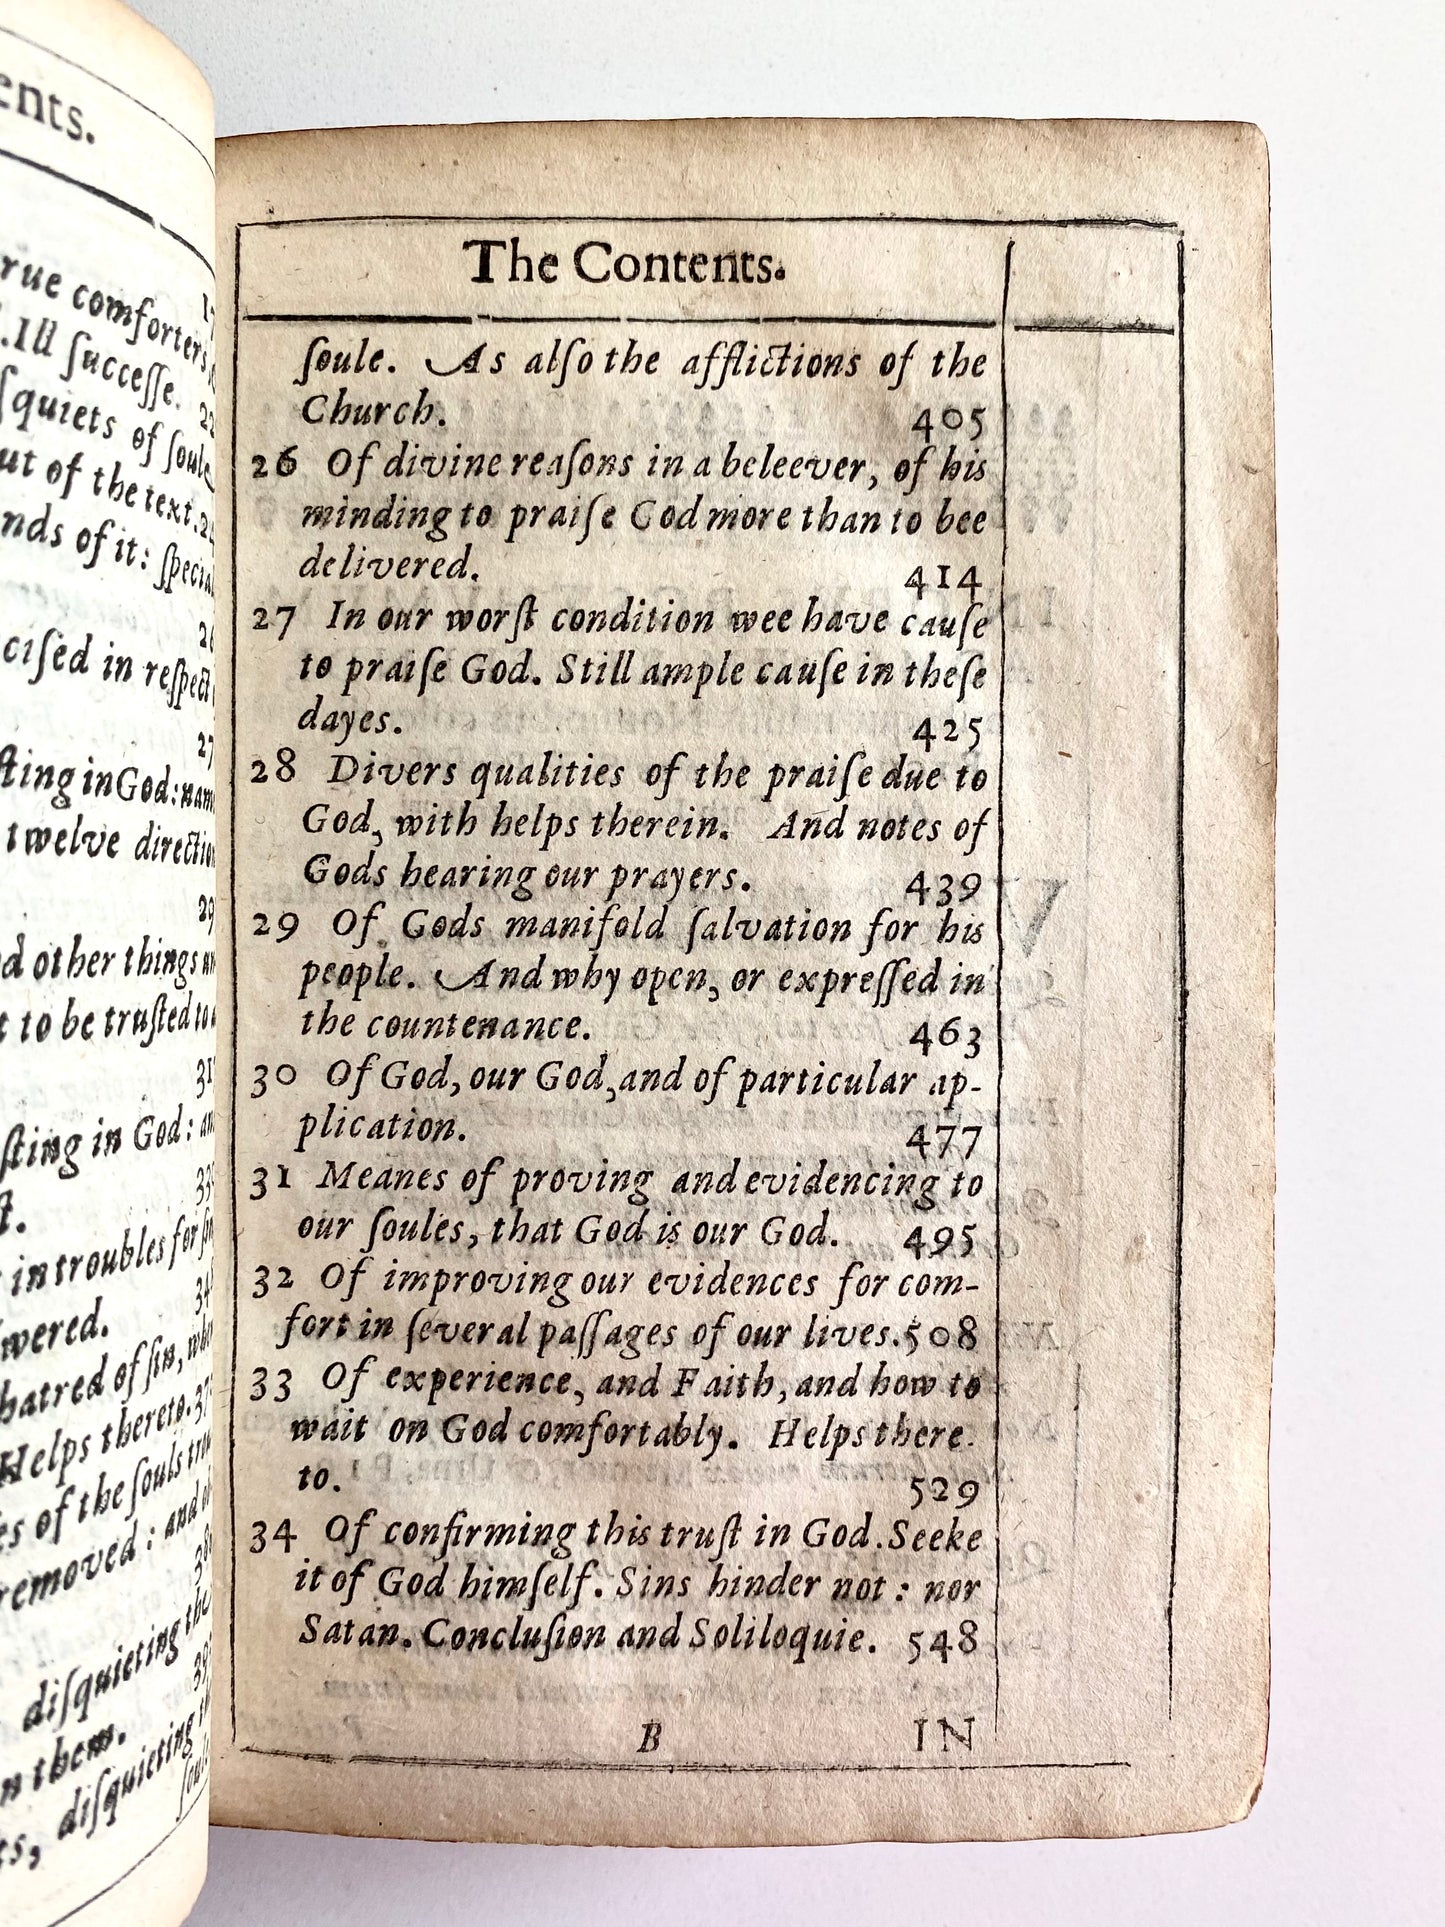 ents.
rue comforters
.Ill ſucceſſe.
ſquiets of ſoule
ut of the text.
nds of it: ſpecial
ciſed in reſpect
ſting in God: nam
twelve direction
d other things
t to be truſted to
ſting in God: an
ſt.
in troubles for ſin
wered.
hatred of ſin,
Helps thereto.
es of the ſouls
removed: and
diſquieting the
n them.
ts, diſquieting
ſoule
The Contents.
ſoule. As alſo the afflictions of the
Church. 405
26 Of divine reaſons in a beleever, of his
minding to praiſe God more than to bee
delivered. 414
27 In our worſt condition wee have cauſe
to praiſe God. Still ample cauſe in theſe
dayes. 425
28 Divers qualities of the praiſe due to
God, with helps therein. And notes of
Gods hearing our prayers. 439
29 Of Gods manifold ſalvation for his
people. And why open, or expreſſed in
the countenance. 463
30 Of God, our God, and of particular ap-
plication. 477
31 Meanes of proving and evidencing to
our ſoules, that God is our God. 495
32 Of improving our evidences for com-
fort in ſeveral paſſages of our lives. 508
33 Of experience, and Faith, and how to
wait on God comfortably. Helps there
to. 529
34 Of confirming this truſt in God. Seeke
it of God himſelf. Sins hinder not: nor
Satan. Concluſion and Soliloquie. 548
B IN